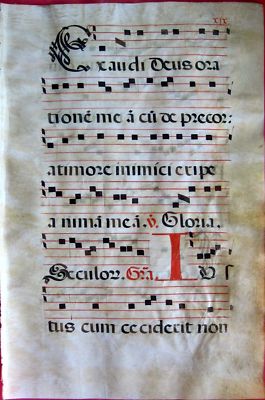 xix
Exaudi Deus ora
tionē me ā cū de precor:
a timore inimici eripe
a nimā me ā. ℣. Gloria.
Seculoꝝ. Gra. I U S
tus cum ceciderit non